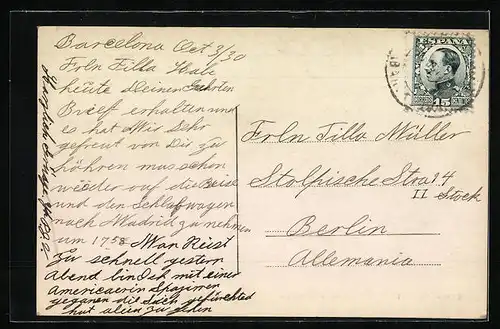 Barcelona Oct 3/30
Frln Tilla Habe
heute deinen geehrten
Brief erhalten und
es hat Mis Sehr
gefreut von Dir zu
höhren mus schon
wieder auf die Reise
und den Schlafwagen
nach Madrid zu nehmen
um 1758 Man Reist
zu schnell gestern
Abend bin Ich mit einer
Americaerin Spaziren
gegangen die Sich gefürchted
hat alein zu gehen
Herzlich
ESPAÑA
15
Frln Tilla Müller
Stolpische Stra 4
II Stock
Berlin
Allemania